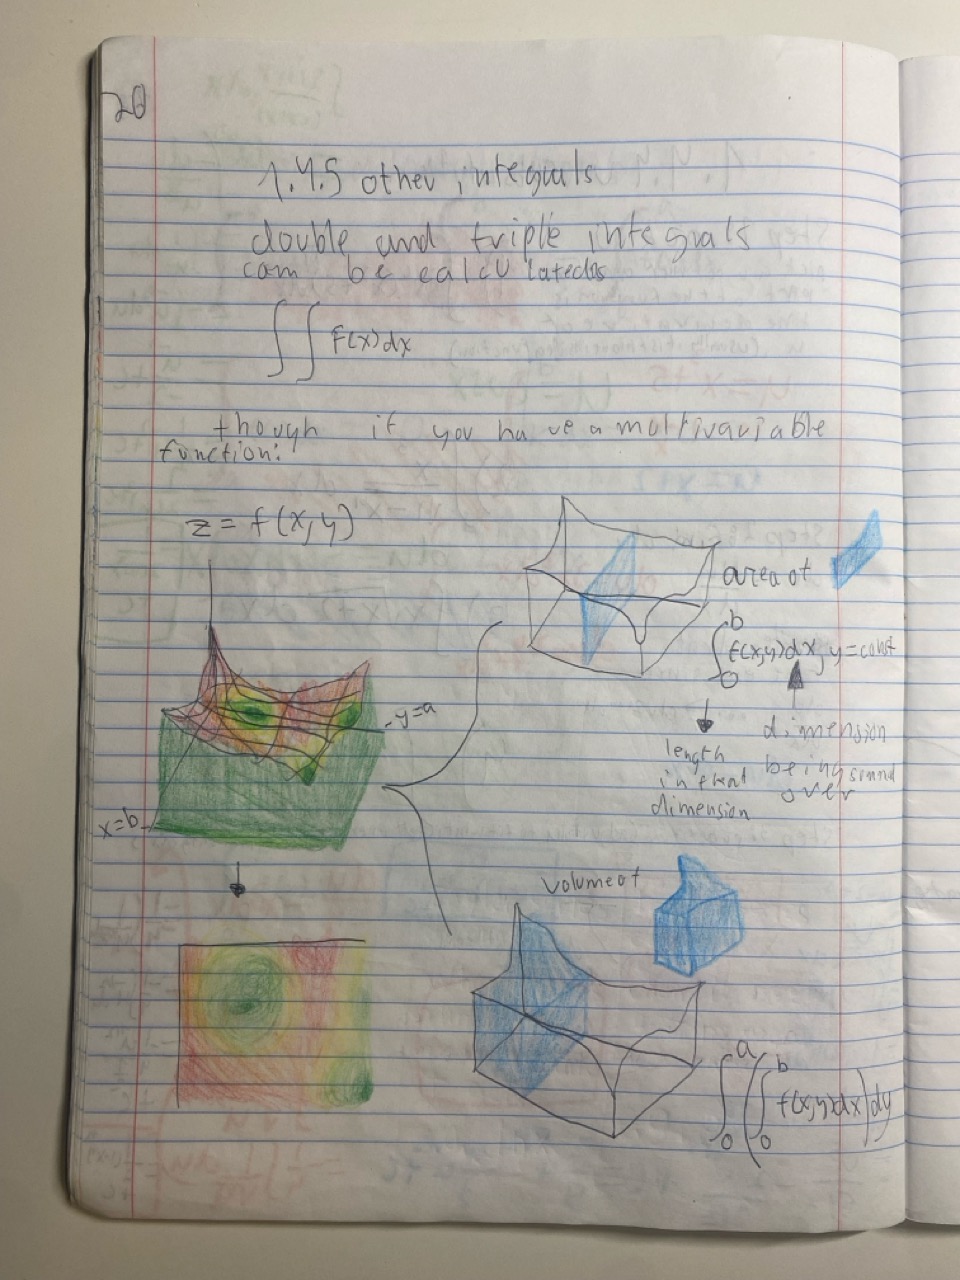 20
1.4.5 other integrals
double and triple integrals
can be calculated
∫∫ f(x)dx
though if you have a multivariable
function:
z = f(x,y)
area of
∫₀ᵇ f(x,y)dx, y=const
length
in that
dimension
dimension
being summed
over
-y=a
x=b-
volume of
∫₀ᵃ(∫₀ᵇ f(x,y)dx)dy